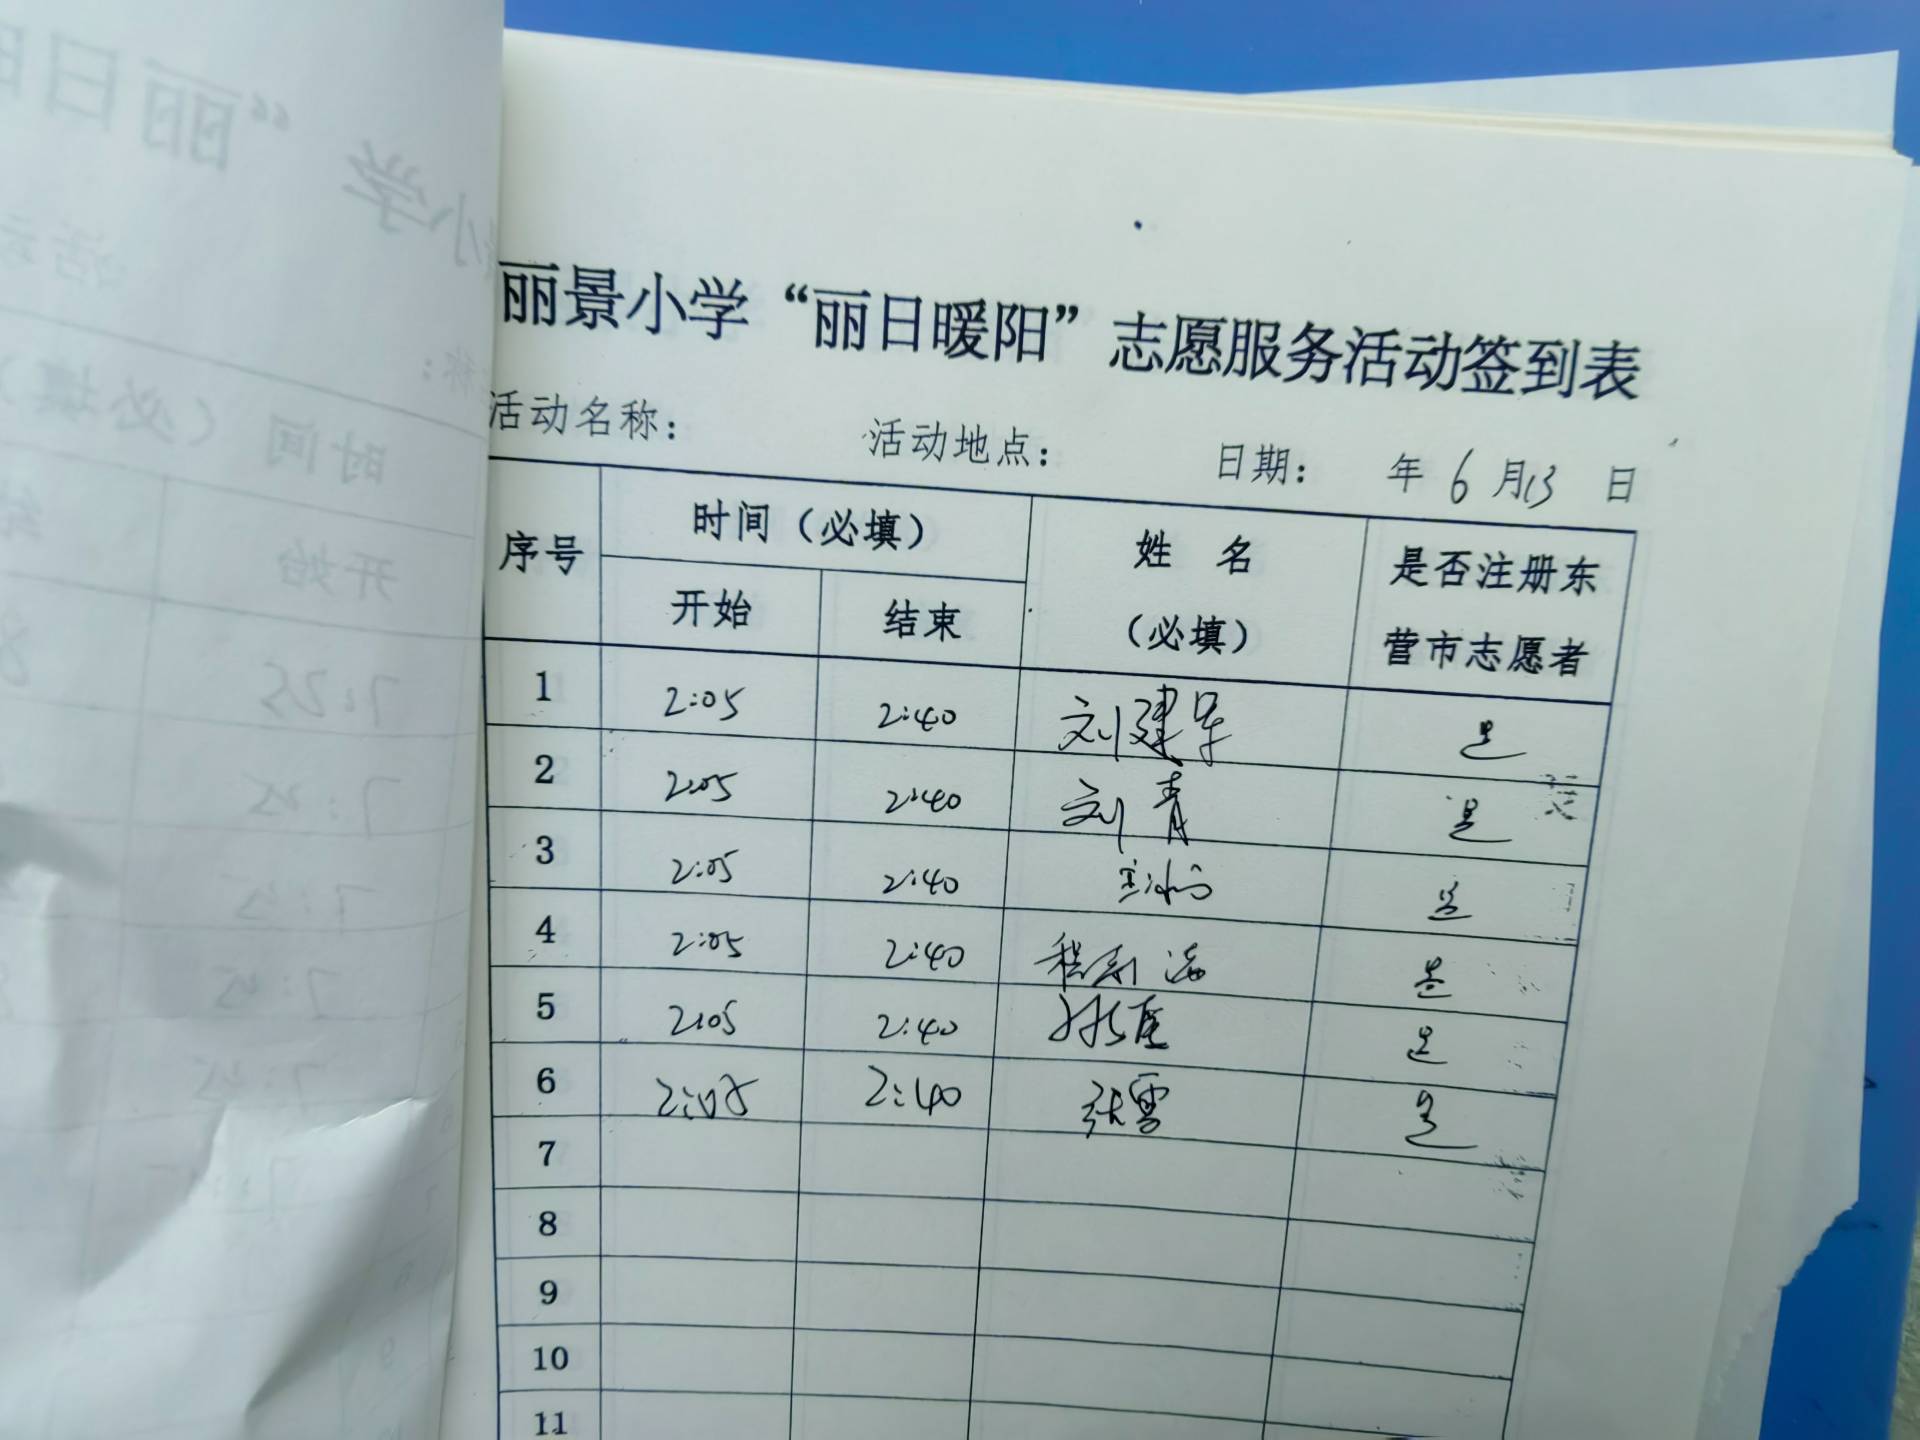 丽景小学“丽日暖阳”志愿服务活动签到表
活动名称： 活动地点： 日期： 年 6 月 13 日
序号 时间（必填） 姓 名（必填） 是否注册东营市志愿者
开始 结束
1 2:05 2:40 刘建军 是
2 2:05 2:40 刘青 是
3 2:05 2:40 是
4 2:05 2:40 是
5 2:05 2:40 是
6 2:05 2:40 张雪 是
7
8
9
10
11